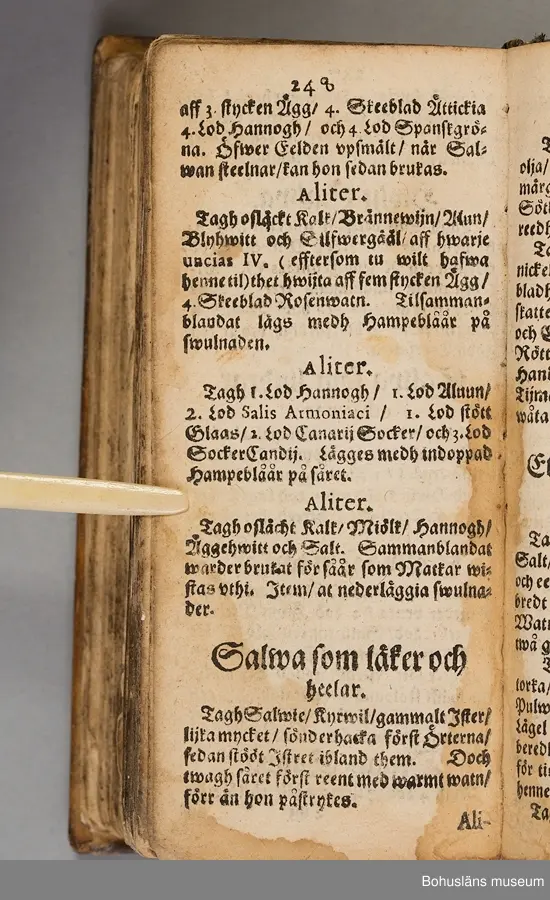 248
aff 3 stycken Ägg/ 4. Skeeblad Ättickia
4. Lod Hannogh/ och 4 Lod Spanskgrö-
na. Öfwer Eelden vpsmält/ när Sal-
wan steelnar/kan hon sedan brukas.
Aliter.
Tagh osläckt Kalk/Brännewijn/Alun/
Blyhwitt och Silfwergåål/ aff hwarje
uncias IV. (efftersom tu wilt hafwa
henne til) thet hwijta aff fem stycken Ägg/
4. Skeeblad Rosenwatn. Tilsamman-
blandat lägs medh Hampeblåår på
swulnaden.
Aliter.
Tagh 1. Lod Hannogh/ 1. Lod Aluun/
2. Lod Salis Armoniaci/ 1. Lod stött
Glaas/ 2. Lod Canarij Socker/ och 3. Lod
SockerCandij. Lägges medh indoppad
Hampeblåår på såret.
Aliter.
Tagh oslächt Kalk/ Miölk/ Hannogh/
Äggehwitt och Salt. Sammanblandat
warder brukat för såår som Matkar wi-
stas vthi. Item/ at nederläggia swulna-
der.
Salwa som läker och
heelar.
Tagh Salwie/ Kyrwil/gammalt Ister/
lijka mycket/ sönderhacka först Örterna/
sedan stööt Istret ibland them. Doch
twagh såret först reent med warmt watn/
förr än hon påstrykes.
Ali-
olja/
märg
Söt
reedh
Ta
nickel
bladh
skatte
och
Rött
Hani
Tijm
wåta
Ta
Salt/
och ee
bredt
Watn
twå g
torka/
Pulw
Lägel
beredl
för ti
henne
Ta
Bohusläns museum